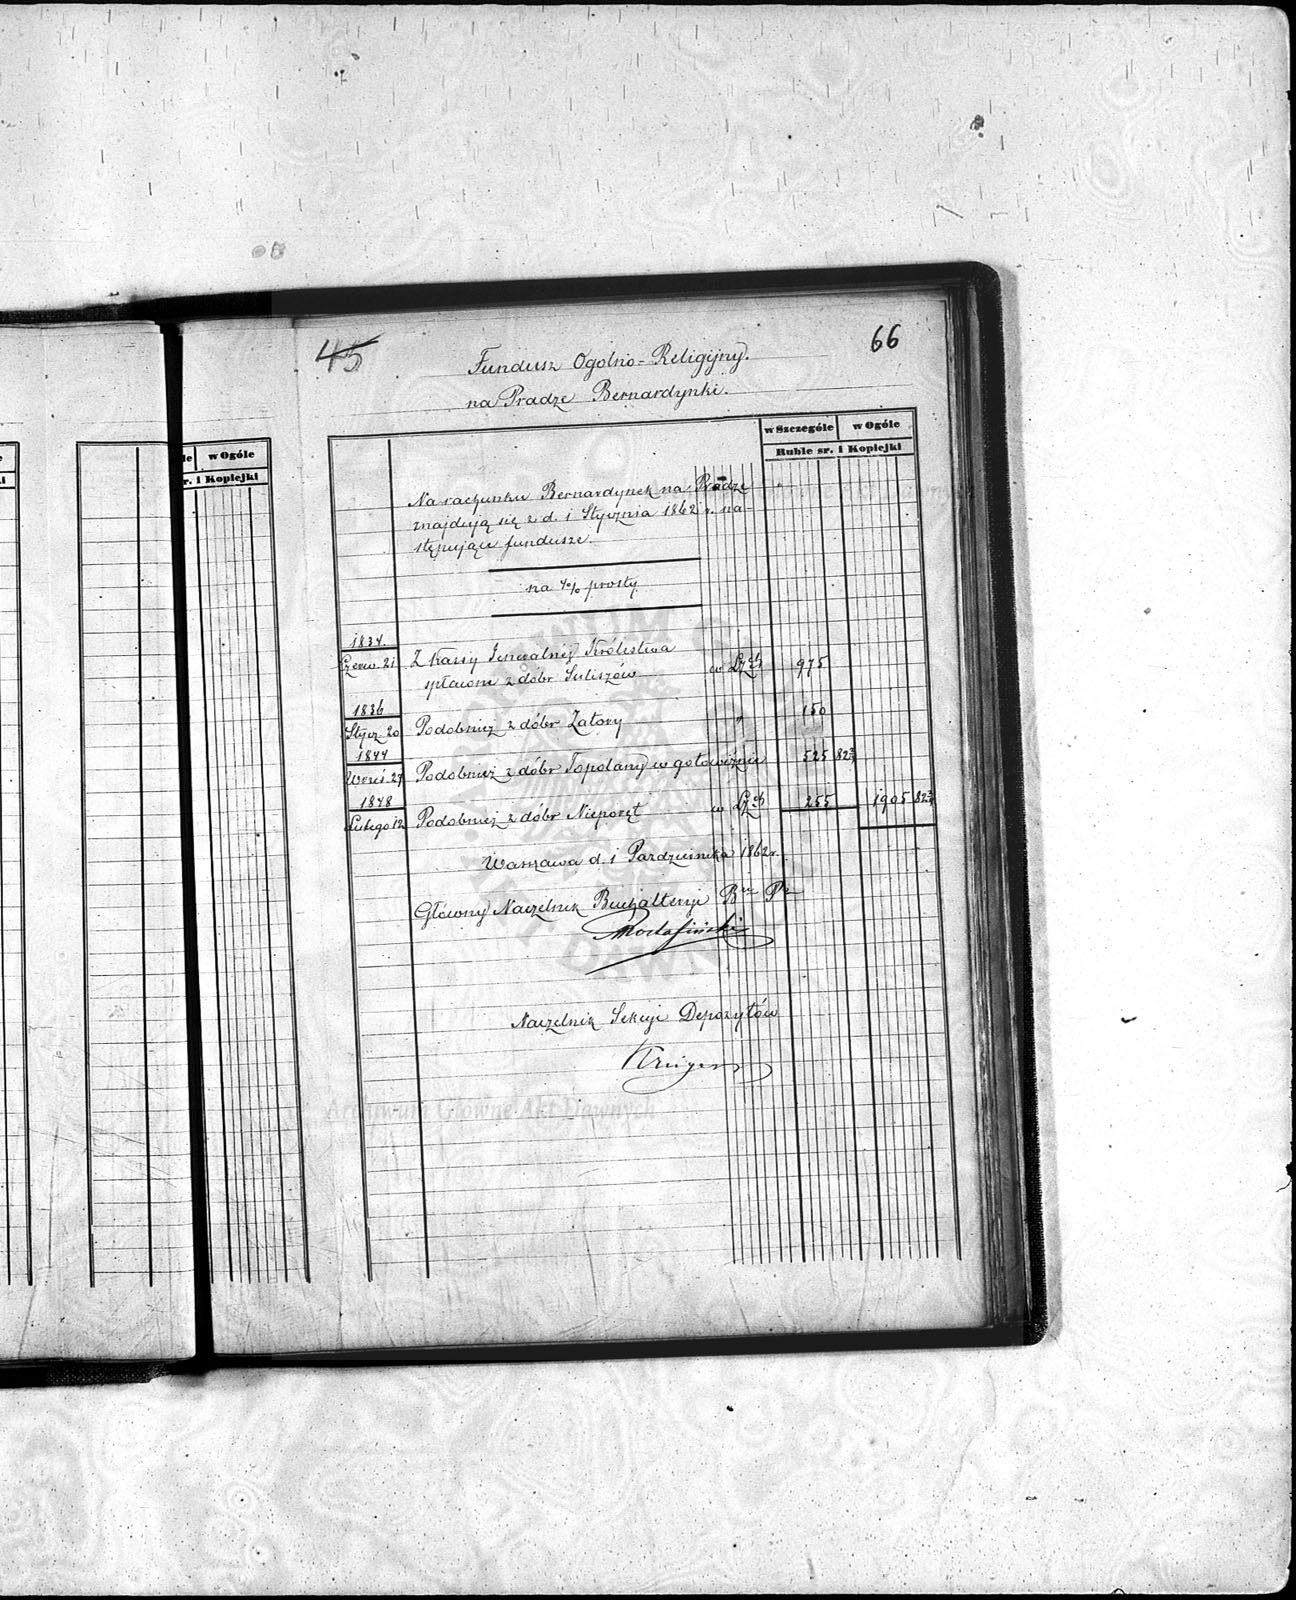 45
66
Fundusz Ogolno-Religijny.
na Pradze Bernardynki.
w Szczególe w Ogóle
Ruble sr. i Kopiejki
w Ogóle
r. i Kopiejki
Na rachunku Bernardynek na Pradze
znajdują się z d. 1 Stycznia 1862 r. na-
stępujące fundusze.
na 4% prosty
1834
Czerw. 21 Z Kassy Jeneralnéj Królestwa
spłacone z dóbr Suliszów w Lzch 975
1836 150
Stycz. 20 Podobnież z dóbr Zatory "
1844
Wrześ. 27 Podobnież z dóbr Topolany w gotowiźnie 525 82¾
1848
Lutego 12 Podobnież z dóbr Nieporęt w Lzch 255 1905 82¾
Warszawa d. 1 Pazdziernika 1862 r.
Główny Naczelnik Buchalteryi
Naczelnik Sekcyi Depozytów
Archiwum Główne Akt Dawnych